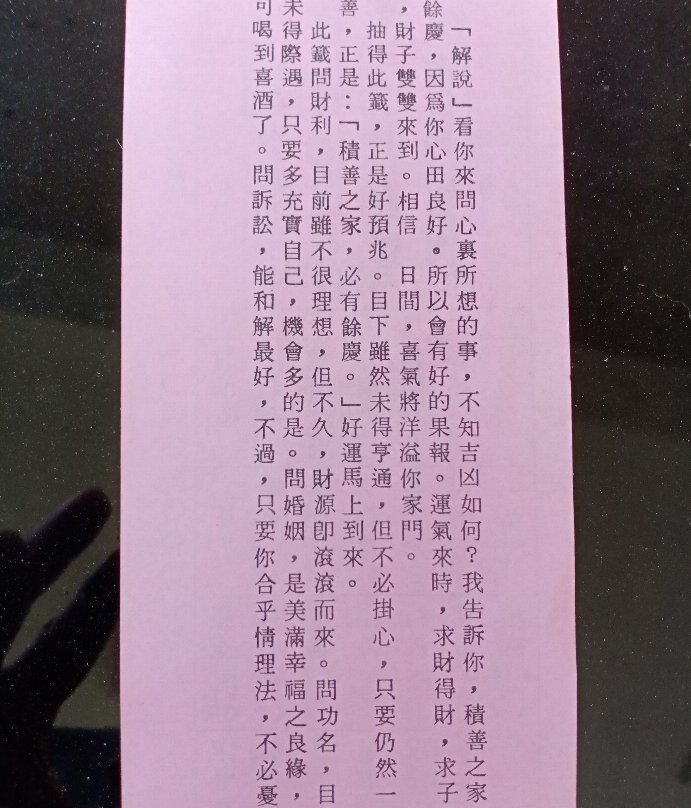 「解說」看你來問心裏所想的事，不知吉凶如何？我告訴你，積善之家
餘慶，因爲你心田良好。所以會有好的果報。運氣來時，求財得財，求子
，財子雙雙來到。相信　日間，喜氣將洋溢你家門。
抽得此籤，正是好預兆。目下雖然未得亨通，但不必掛心，只要仍然一
善，正是：「積善之家，必有餘慶。」好運馬上到來。
此籤問財利，目前雖不很理想，但不久，財源卽滾滾而來。問功名，目
未得際遇，只要多充實自己，機會多的是。問婚姻，是美滿幸福之良緣，
可喝到喜酒了。問訴訟，能和解最好，不過，只要你合乎情理法，不必憂